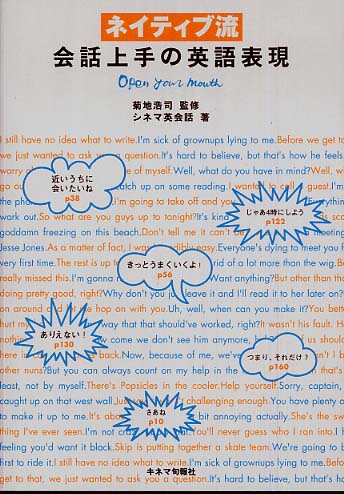 ネイティブ流
会話上手の英語表現
Open your mouth
菊地浩司 監修
シネマ英会話 著
I still have no idea what to write.I'm sick of grownups lying to me.Before we get to
we just wanted to ask you a question.It's hard to believe, but that's how he feels.
worry of myself.Well, what do you have in mind?Well, w
go ou catch up on some reading.I wanted to call guest.I'm
the pho I'm going to take off and you Everything
work out.So what are you guys up to tonight?It's kind
goddamn freezing on this beach.Don't tell me it can't be meeting
Jesse Jones.As a matter of fact, I was incredibly easy.Everyone's dying to meet you f
very first time.The rest is up to rid of a lot more than the wig.Be
really missed this.I'm gonna n Want anything?But other than tha
doing pretty good, right?Why don't you leave it and I'll read it to her later on?
on around d hop on with you.Uh, well, when can you make it?You bette
hurt my way that should've worked, right?It wasn't his fault. H
nothing ow come we don't see him anymore, b us should
there in back.Now, because of me, we've can't I b
other nuns?But you can always count on my help in the that's
least, not by myself.There's Popsicles in the cooler.Help yourself.Sorry, captain,
caught up on that west wall.Just challenging enough.You have plenty o
to make it up to me.It's abou bit annoying actually.She's the sw
thing I've ever seen.I'm not cra You'll never guess who I ran into.I h
feeling you'd want it black.Skip is putting together a skate team.We're going to b
first to ride it.I still have no idea what to write.I'm sick of grownups lying to me.
Before we get to that, we just wanted to ask you a question.It's hard to believe, but
近いうちに
会いたいね
p38
じゃあ4時にしよう
p122
きっとうまくいくよ！
p56
ありえない！
p130
つまり、それだけ？
p160
さあね
p10
キネマ旬報社